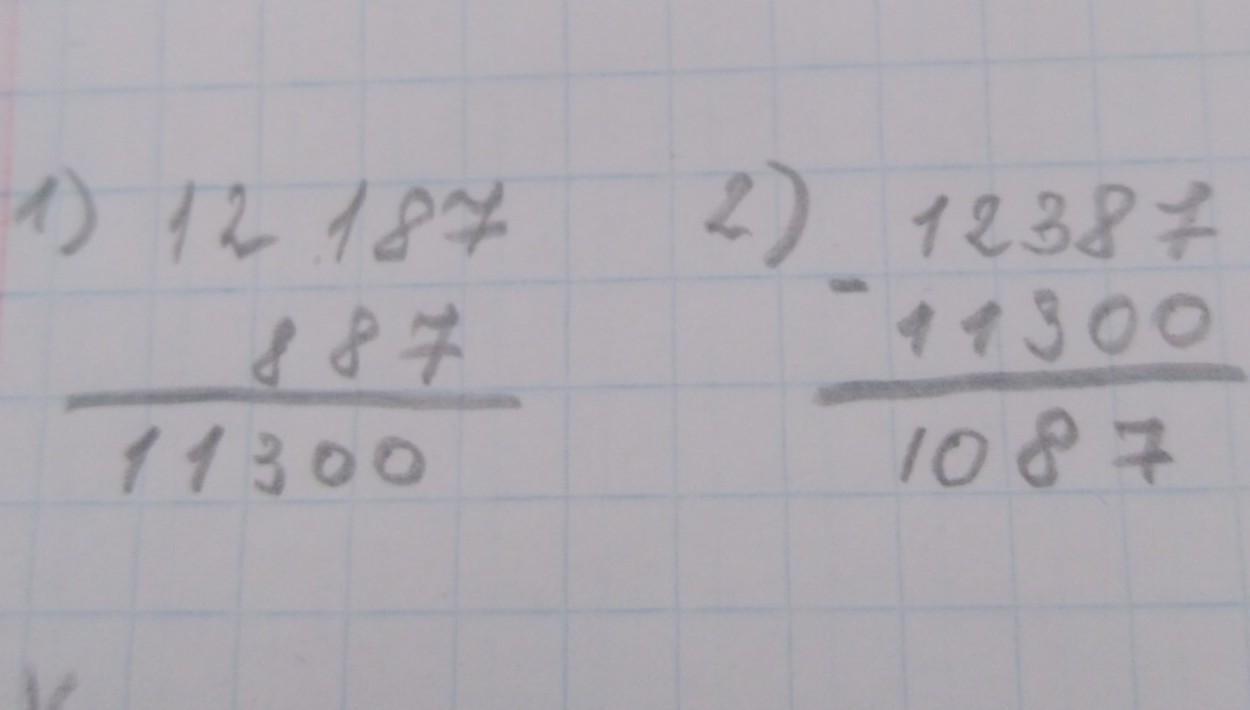 1) 12 187
887
11300
2) 12387
- 11300
1087